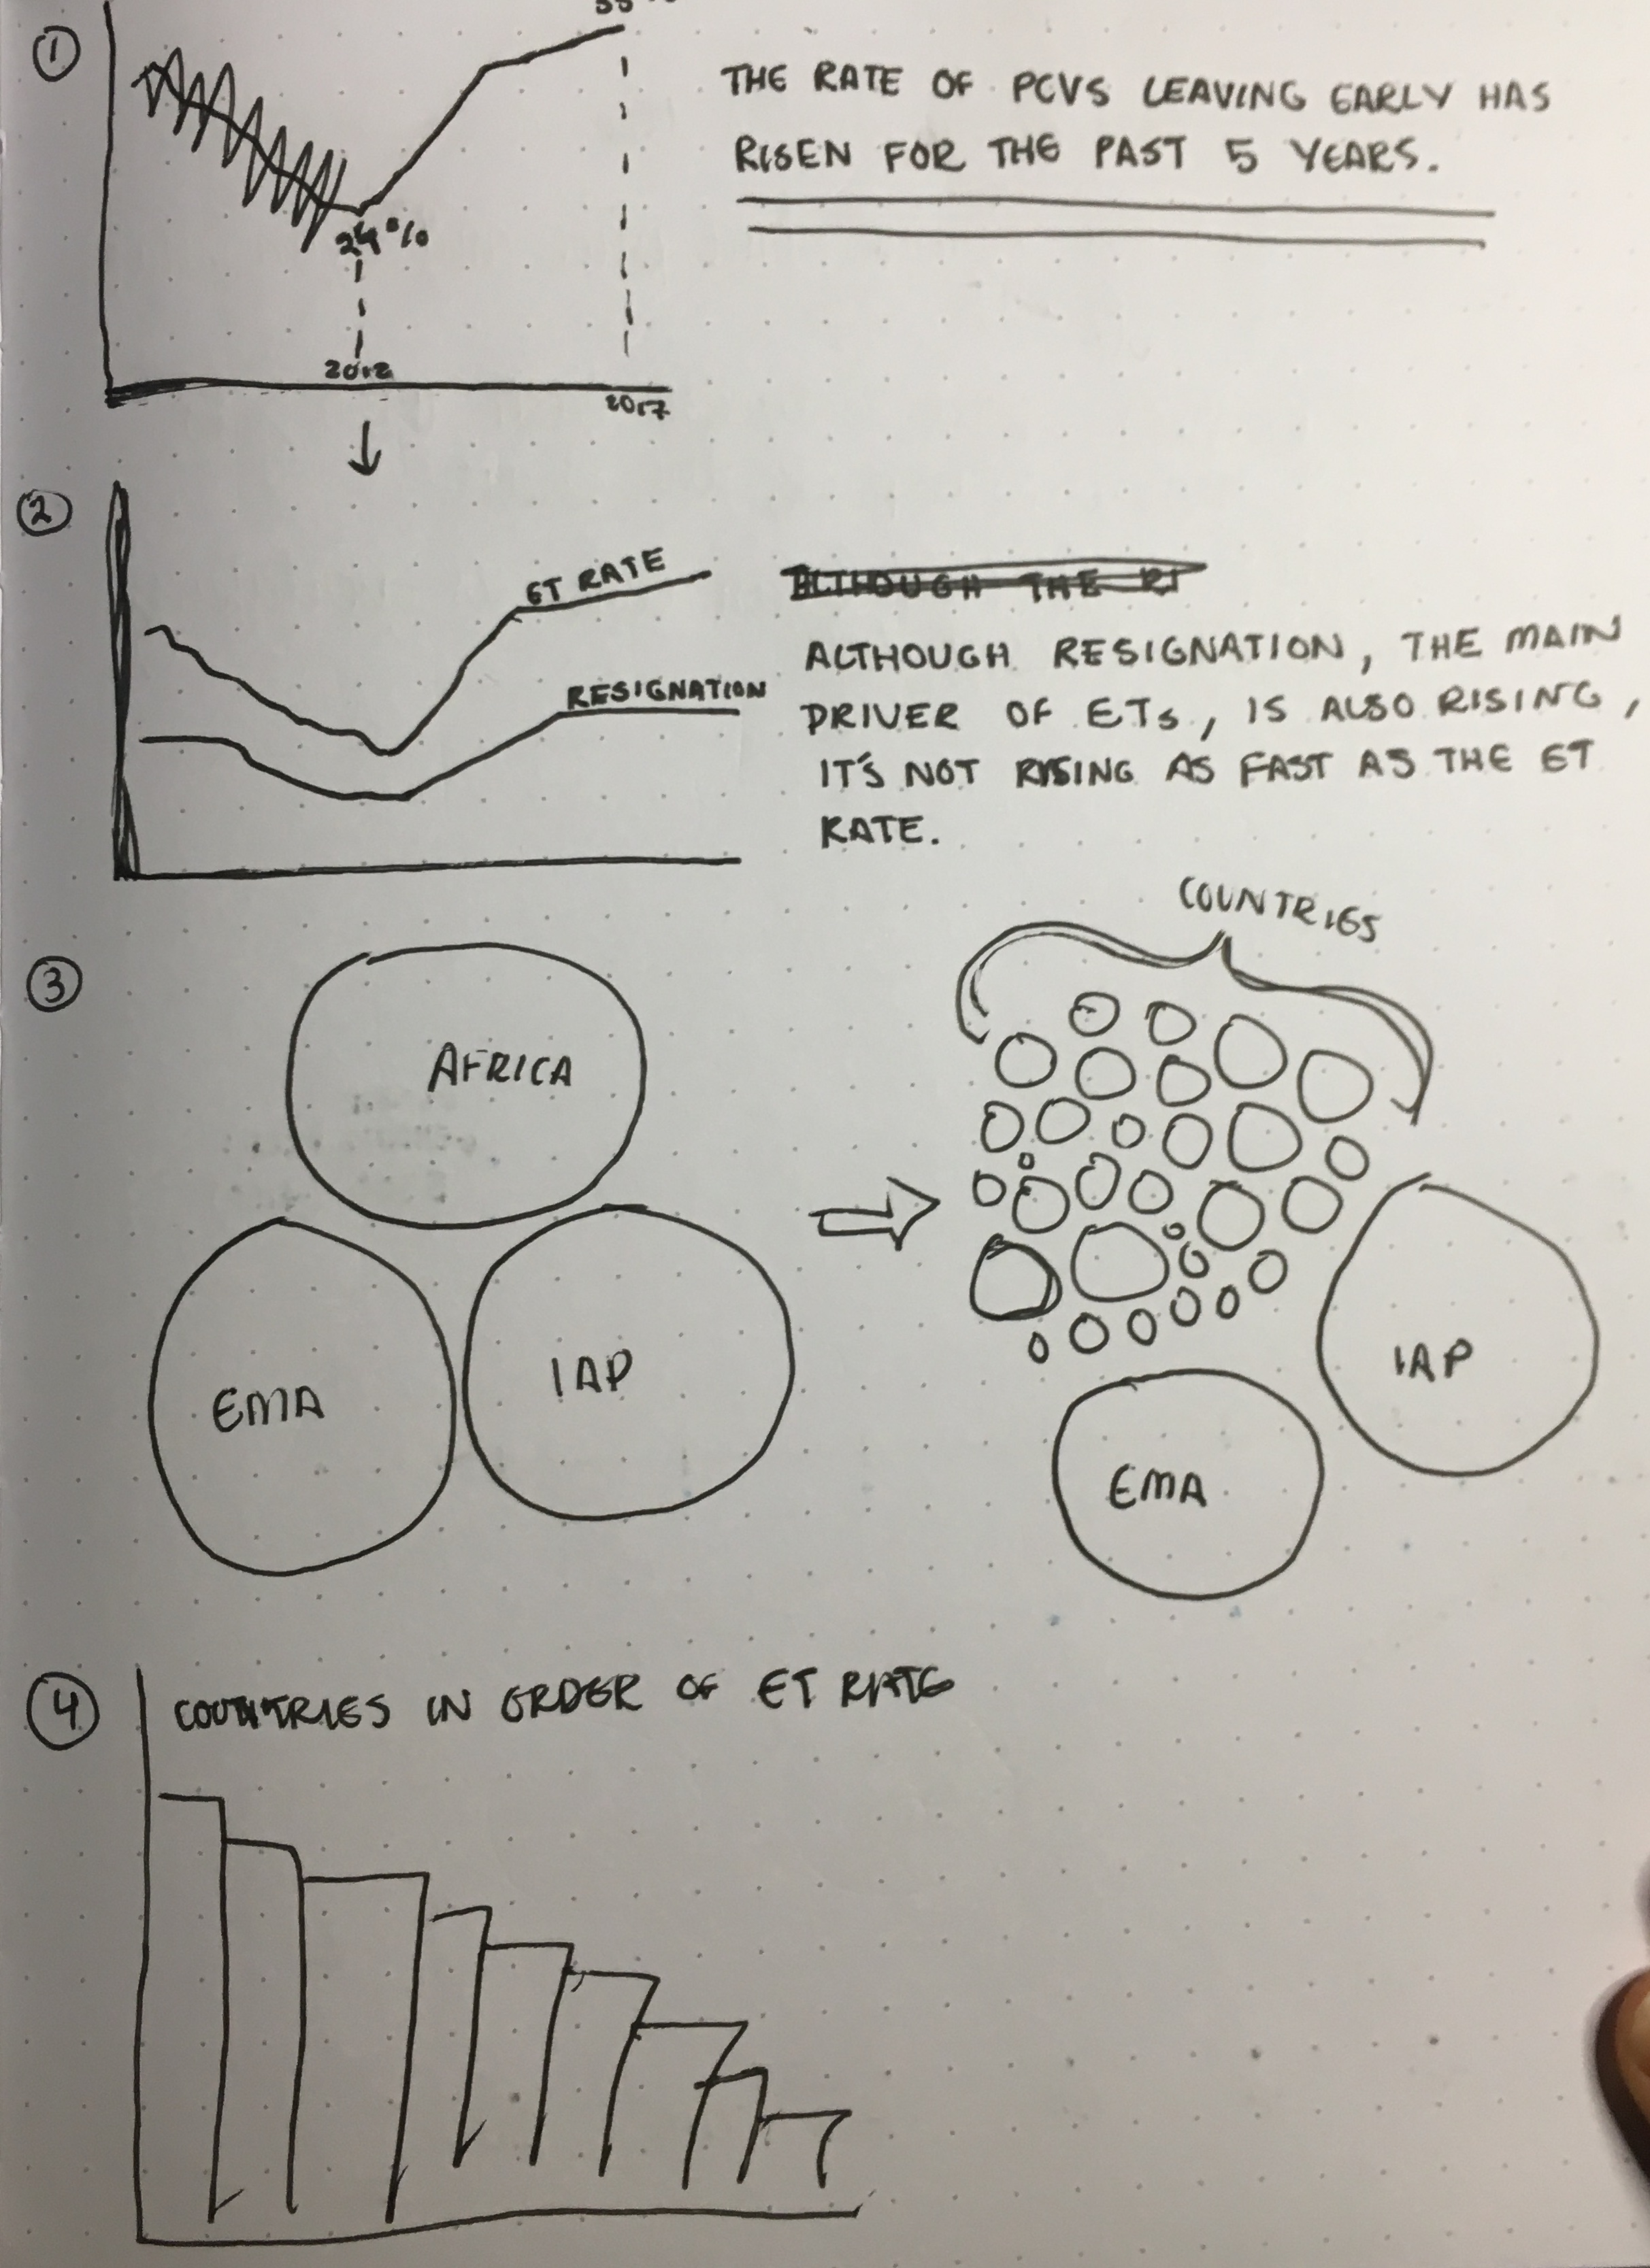 ①
THE RATE OF PCVS LEAVING EARLY HAS
RISEN FOR THE PAST 5 YEARS.
24%
2012
2017
②
ET RATE
RESIGNATION
ALTHOUGH THE RI
ALTHOUGH RESIGNATION, THE MAIN
DRIVER OF ETs, IS ALSO RISING,
IT'S NOT RISING AS FAST AS THE ET
RATE.
③
COUNTRIES
AFRICA
EMA
IAP
IAP
EMA
④
COUNTRIES IN ORDER OF ET RATE